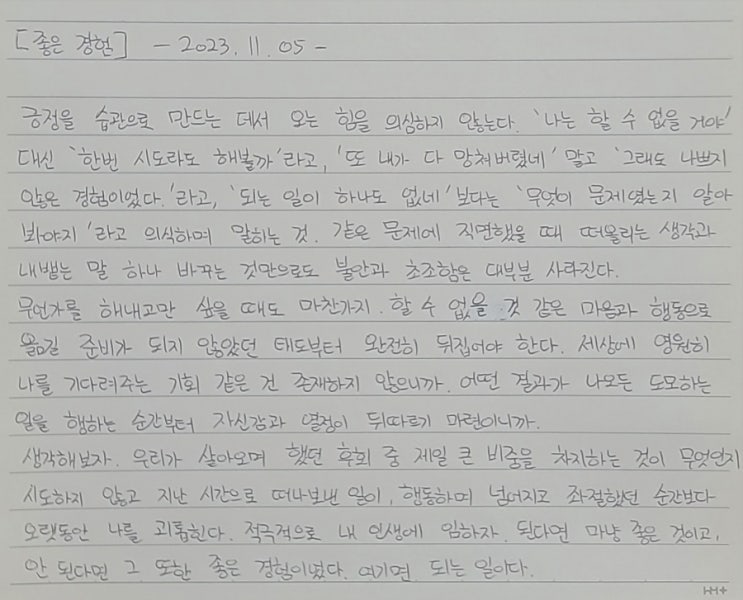 [좋은 경험] - 2023. 11. 05 -
긍정을 습관으로 만드는 데서 오는 힘을 의심하지 않는다. '나는 할 수 없을 거야'
대신 '한번 시도라도 해볼까'라고, '또 내가 다 망쳐버렸네' 말고 '그래도 나쁘지
않은 경험이었다.'라고, '되는 일이 하나도 없네' 보다는 '무엇이 문제였는지 알아
봐야지'라고 의식하며 말하는 것. 같은 문제에 직면했을 때 떠올리는 생각과
내뱉는 말 하나 바꾸는 것만으로도 불안과 초조함은 대부분 사라진다.
무언가를 해내고만 싶을 때도 마찬가지. 할 수 없을 것 같은 마음과 행동으로
옮길 준비가 되지 않았던 태도부터 완전히 뒤집어야 한다. 세상에 영원히
나를 기다려주는 기회 같은 건 존재하지 않으니까. 어떤 결과가 나오든 도모하는
일을 행하는 순간부터 자신감과 열정이 뒤따르기 마련이니까.
생각해보자. 우리가 살아오며 했던 후회 중 제일 큰 비중을 차지하는 것이 무엇인지
시도하지 않고 지난 시간으로 떠나보낸 일이, 행동하며 넘어지고 좌절했던 순간보다
오랫동안 나를 괴롭힌다. 적극적으로 내 인생에 임하자. 된다면 마냥 좋은 것이고,
안 된다면 그 또한 좋은 경험이었다. 여기면 되는 일이다.